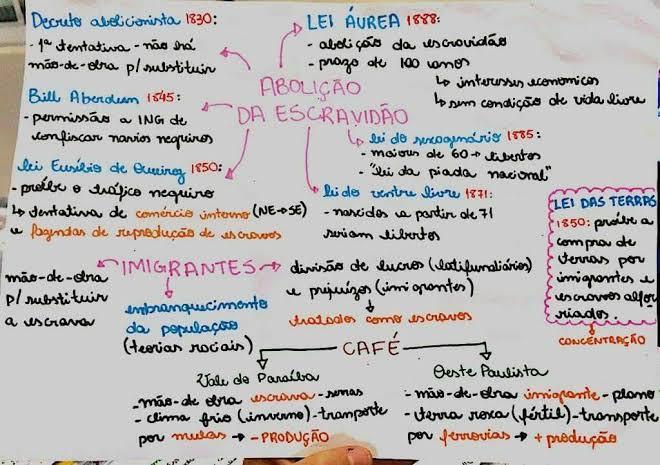 Decreto abolicionista 1830:
- 1ª tentativa - não há
mão-de-obra p/ substituir
LEI ÁUREA 1888:
- abolição da escravidão
- prazo de 100 anos
↳ interesses economicos
↳ sem condição de vida livre
ABOLIÇÃO
DA ESCRAVIDÃO
Bill Aberdeen 1845:
- permissão a ING de
confiscar navios negreiros
lei do sexagenário 1885:
- maiores de 60 → libertos
- "lei da piada nacional"
lei Eusíbio de Queiroz 1850:
- proíbe o tráfico negreiro
↳ tentativa de comércio interno (NE→SE)
e fazendas de reprodução de escravos
lei do ventre livre 1871:
- nascidos a partir de 71
seriam libertos
LEI DAS TERRAS
1850: proíbe a
compra de
terras por
imigrantes e
escravos alfor
riados.
CONCENTRAÇÃO
IMIGRANTES →
mão-de-obra
p/ substituir
a escrava
embranquecimento
da população
(teorias raciais)
divisão de lucros (latifundiários)
e prejuízos (imigrantes)
tratados como escravos
CAFÉ
Vale do Paraíba
- mão-de obra escrava - serras
- clima frio (inverno) - transporte
por mulas → - PRODUÇÃO
Oeste Paulista
- mão-de-obra imigrante - plano
- terra roxa (fértil) - transporte
por ferrovias → + produção